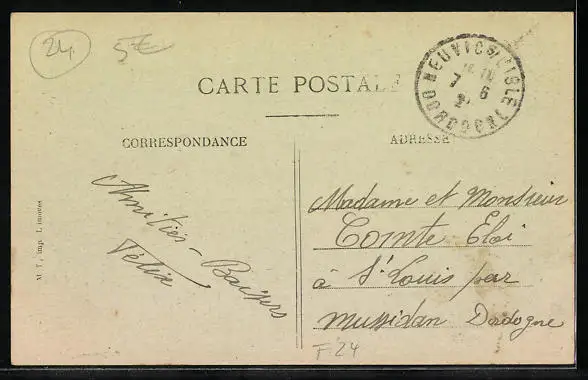 24
5€
CARTE POSTALE
NEUVIC S/ L'ISLE
7 - 6
DORDOGNE
CORRESPONDANCE
ADRESSE
Amitiés - Baisers
Félix
Madame et Monsieur
Comte Eloi
à St Louis par
Mussidan Dordogne
F 24
M T, imp. Limoges